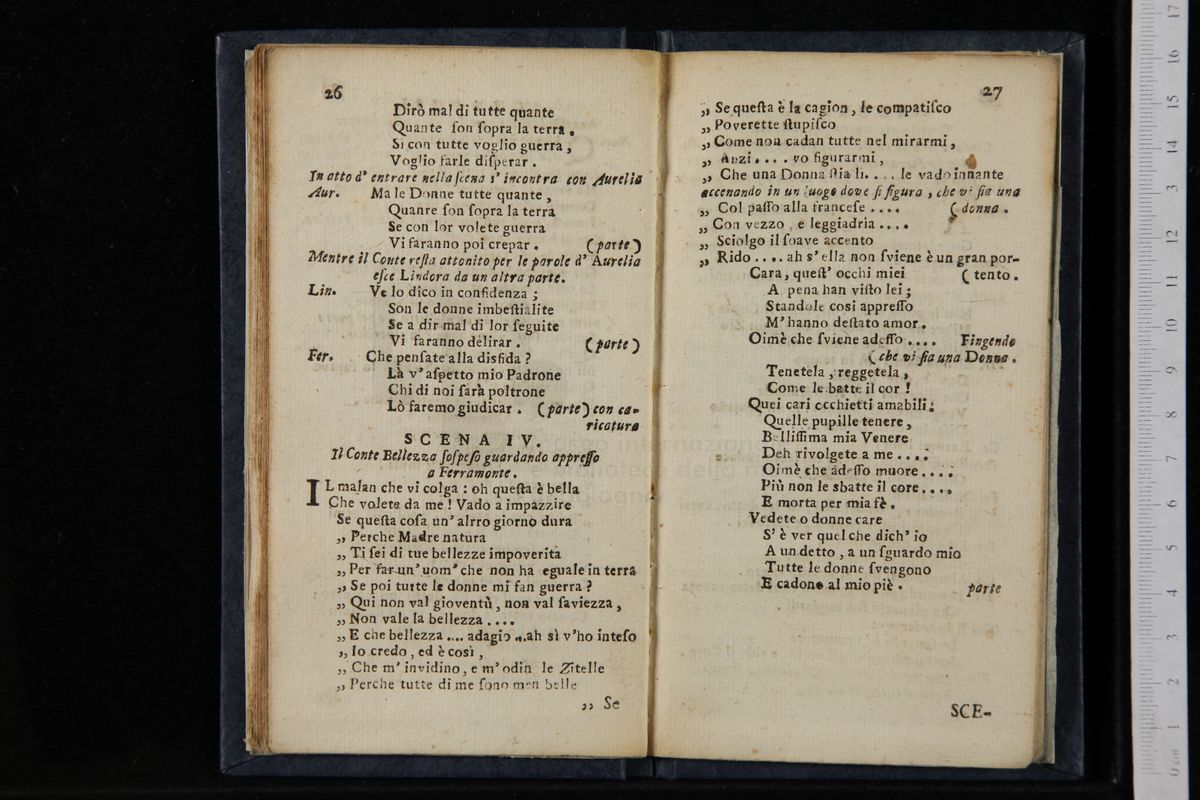 26
Dirò mal di tutte quante
Quante ſon ſopra la terra.
Si con tutte voglio guerra,
Voglio farle diſperar.
In atto d' entrare nella ſcena s' incontra con Aurelia
Aur. Ma le Donne tutte quante,
Quanre ſon ſopra la terra
Se con lor volete guerra
Vi faranno poi crepar. (parte)
Mentre il Conte reſta attonito per le parole d' Aurelia
eſce Lindora da un altra parte.
Lin. Ve lo dico in confidenza;
Son le donne imbeſtialite
Se a dir mal di lor ſeguite
Vi faranno delirar. (parte)
Fer. Che penſate alla disfida?
Là v' aſpetto mio Padrone
Chi di noi ſarà poltrone
Lò faremo giudicar. (parte) con ca-
ricatura
SCENA IV.
Il Conte Bellezza ſoſpeſo guardando appreſſo
a Ferramonte.
IL malan che vi colga: oh queſta è bella
Che volete da me! Vado a impazzire
Se queſta coſa un' alrro giorno dura
,, Perche Madre natura
,, Ti ſei di tue bellezze impoverita
,, Per far un' uom' che non ha eguale in terra
,, Se poi tutte le donne mi fan guerra?
,, Qui non val gioventù, non val ſaviezza,
,, Non vale la bellezza ....
,, E che bellezza .... adagio ...ah sì v'ho inteſo
,, Io credo, ed è così,
,, Che m' invidino, e m' odin le Zitelle
,, Perche tutte di me ſono men belle
,, Se
27
,, Se queſta è la cagion, le compatiſco
,, Poverette ſtupiſco
,, Come non cadan tutte nel mirarmi,
,, Anzi.... vo figurarmi,
,, Che una Donna ſtia lì.... le vado innante
accenando in un luogo dove ſi figura, che vi ſia una
,, Col paſſo alla franceſe .... (donna.
,, Con vezzo, e leggiadria ....
,, Sciolgo il ſoave accento
,, Rido .... ah s' ella non ſviene è un gran por-
Cara, queſt' occhi miei (tento.
A pena han viſto lei;
Standole cosi appreſſo
M' hanno deſtato amor.
Oimè che ſviene adeſſo .... Fingendo
(che vi ſia una Donna.
Tenetela, reggetela,
Come le batte il cor!
Quei cari occhietti amabili;
Quelle pupille tenere,
Belliſſima mia Venere
Deh rivolgete a me ....
Oimè che adeſſo muore ....
Più non le sbatte il core ....
E morta per mia fè.
Vedete o donne care
S' è ver quel che dich' io
A un detto, a un ſguardo mio
Tutte le donne ſvengono
E cadono al mio piè. parte
SCE-